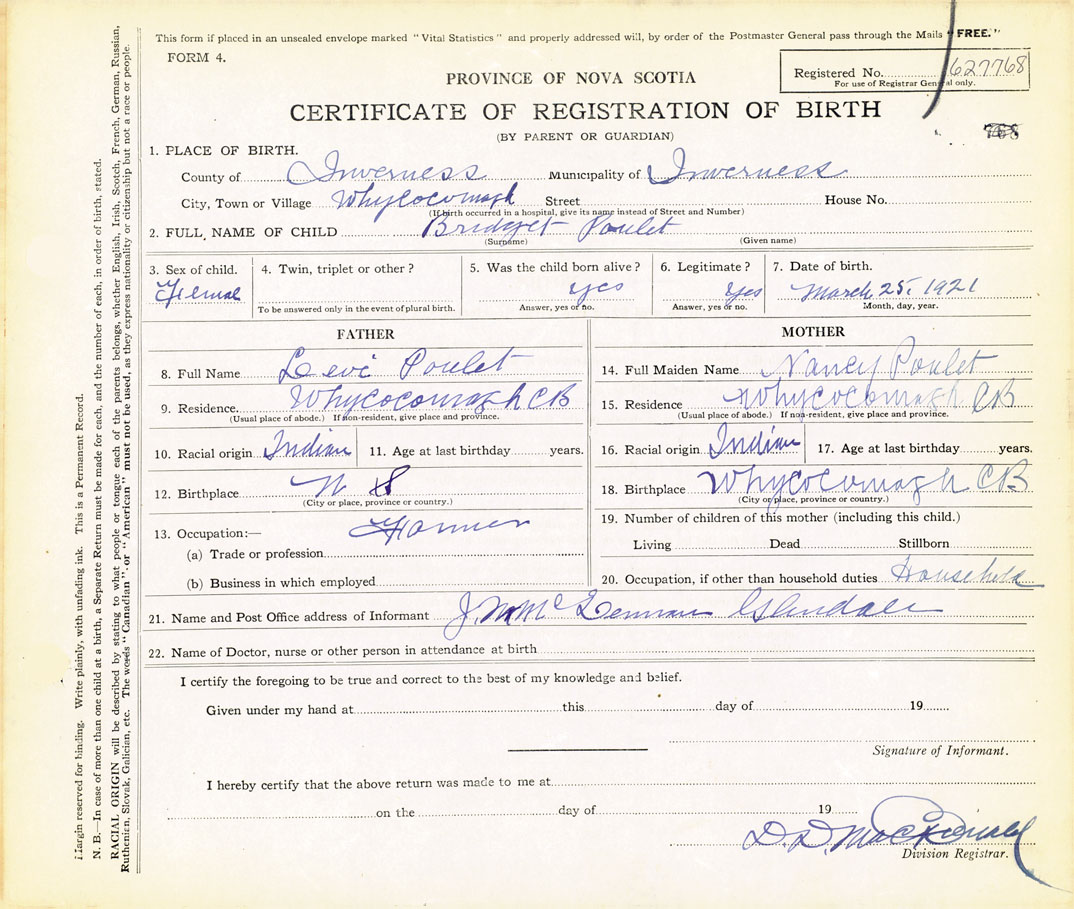 This form if placed in an unsealed envelope marked "Vital Statistics" and properly addressed will, by order of the Postmaster General pass through the Mails "FREE."
FORM 4.
Registered No. 627768
For use of Registrar General only.
PROVINCE OF NOVA SCOTIA
CERTIFICATE OF REGISTRATION OF BIRTH
(BY PARENT OR GUARDIAN)
1. PLACE OF BIRTH.
County of Inverness Municipality of Inverness
City, Town or Village Whycocomagh Street House No.
(If birth occurred in a hospital, give its name instead of Street and Number)
2. FULL NAME OF CHILD Bridget Poulet
(Surname) (Given name)
3. Sex of child. 4. Twin, triplet or other? 5. Was the child born alive? 6. Legitimate? 7. Date of birth.
Femal yes Yes March 25, 1921
To be answered only in the event of plural birth. Answer, yes or no. Answer, yes or no. Month, day, year.
FATHER
8. Full Name Levi Poulet
9. Residence. Whycocomagh CB
(Usual place of abode.) If non-resident, give place and province.
10. Racial origin Indian 11. Age at last birthday years.
12. Birthplace N S
(City or place, province or country.)
13. Occupation:— Farmer
(a) Trade or profession
(b) Business in which employed
MOTHER
14. Full Maiden Name Nancy Poulet
15. Residence Whycocomagh CB
(Usual place of abode.) If non-resident, give place and province.
16. Racial origin Indian 17. Age at last birthday years.
18. Birthplace Whycocomagh CB
(City or place, province or country.)
19. Number of children of this mother (including this child.)
Living Dead Stillborn
20. Occupation, if other than household duties Household
21. Name and Post Office address of Informant J. M McLennan Glendale
22. Name of Doctor, nurse or other person in attendance at birth
I certify the foregoing to be true and correct to the best of my knowledge and belief.
Given under my hand at this day of 19
Signature of Informant.
I hereby certify that the above return was made to me at
on the day of 19
D. D. MacDonald
Division Registrar.
Margin reserved for binding. Write plainly, with unfading ink. This is a Permanent Record.
N. B.—In case of more than one child at a birth, a Separate Return must be made for each, and the number of each, in order of birth, stated.
RACIAL ORIGIN will be described by stating to what people or tongue each of the parents belongs, whether English, Irish, Scotch, French, German, Russian,
Ruthenian, Slovak, Galician, etc. The words "Canadian" or "American" must not be used, as they express nationality or citizenship but not a race or people.